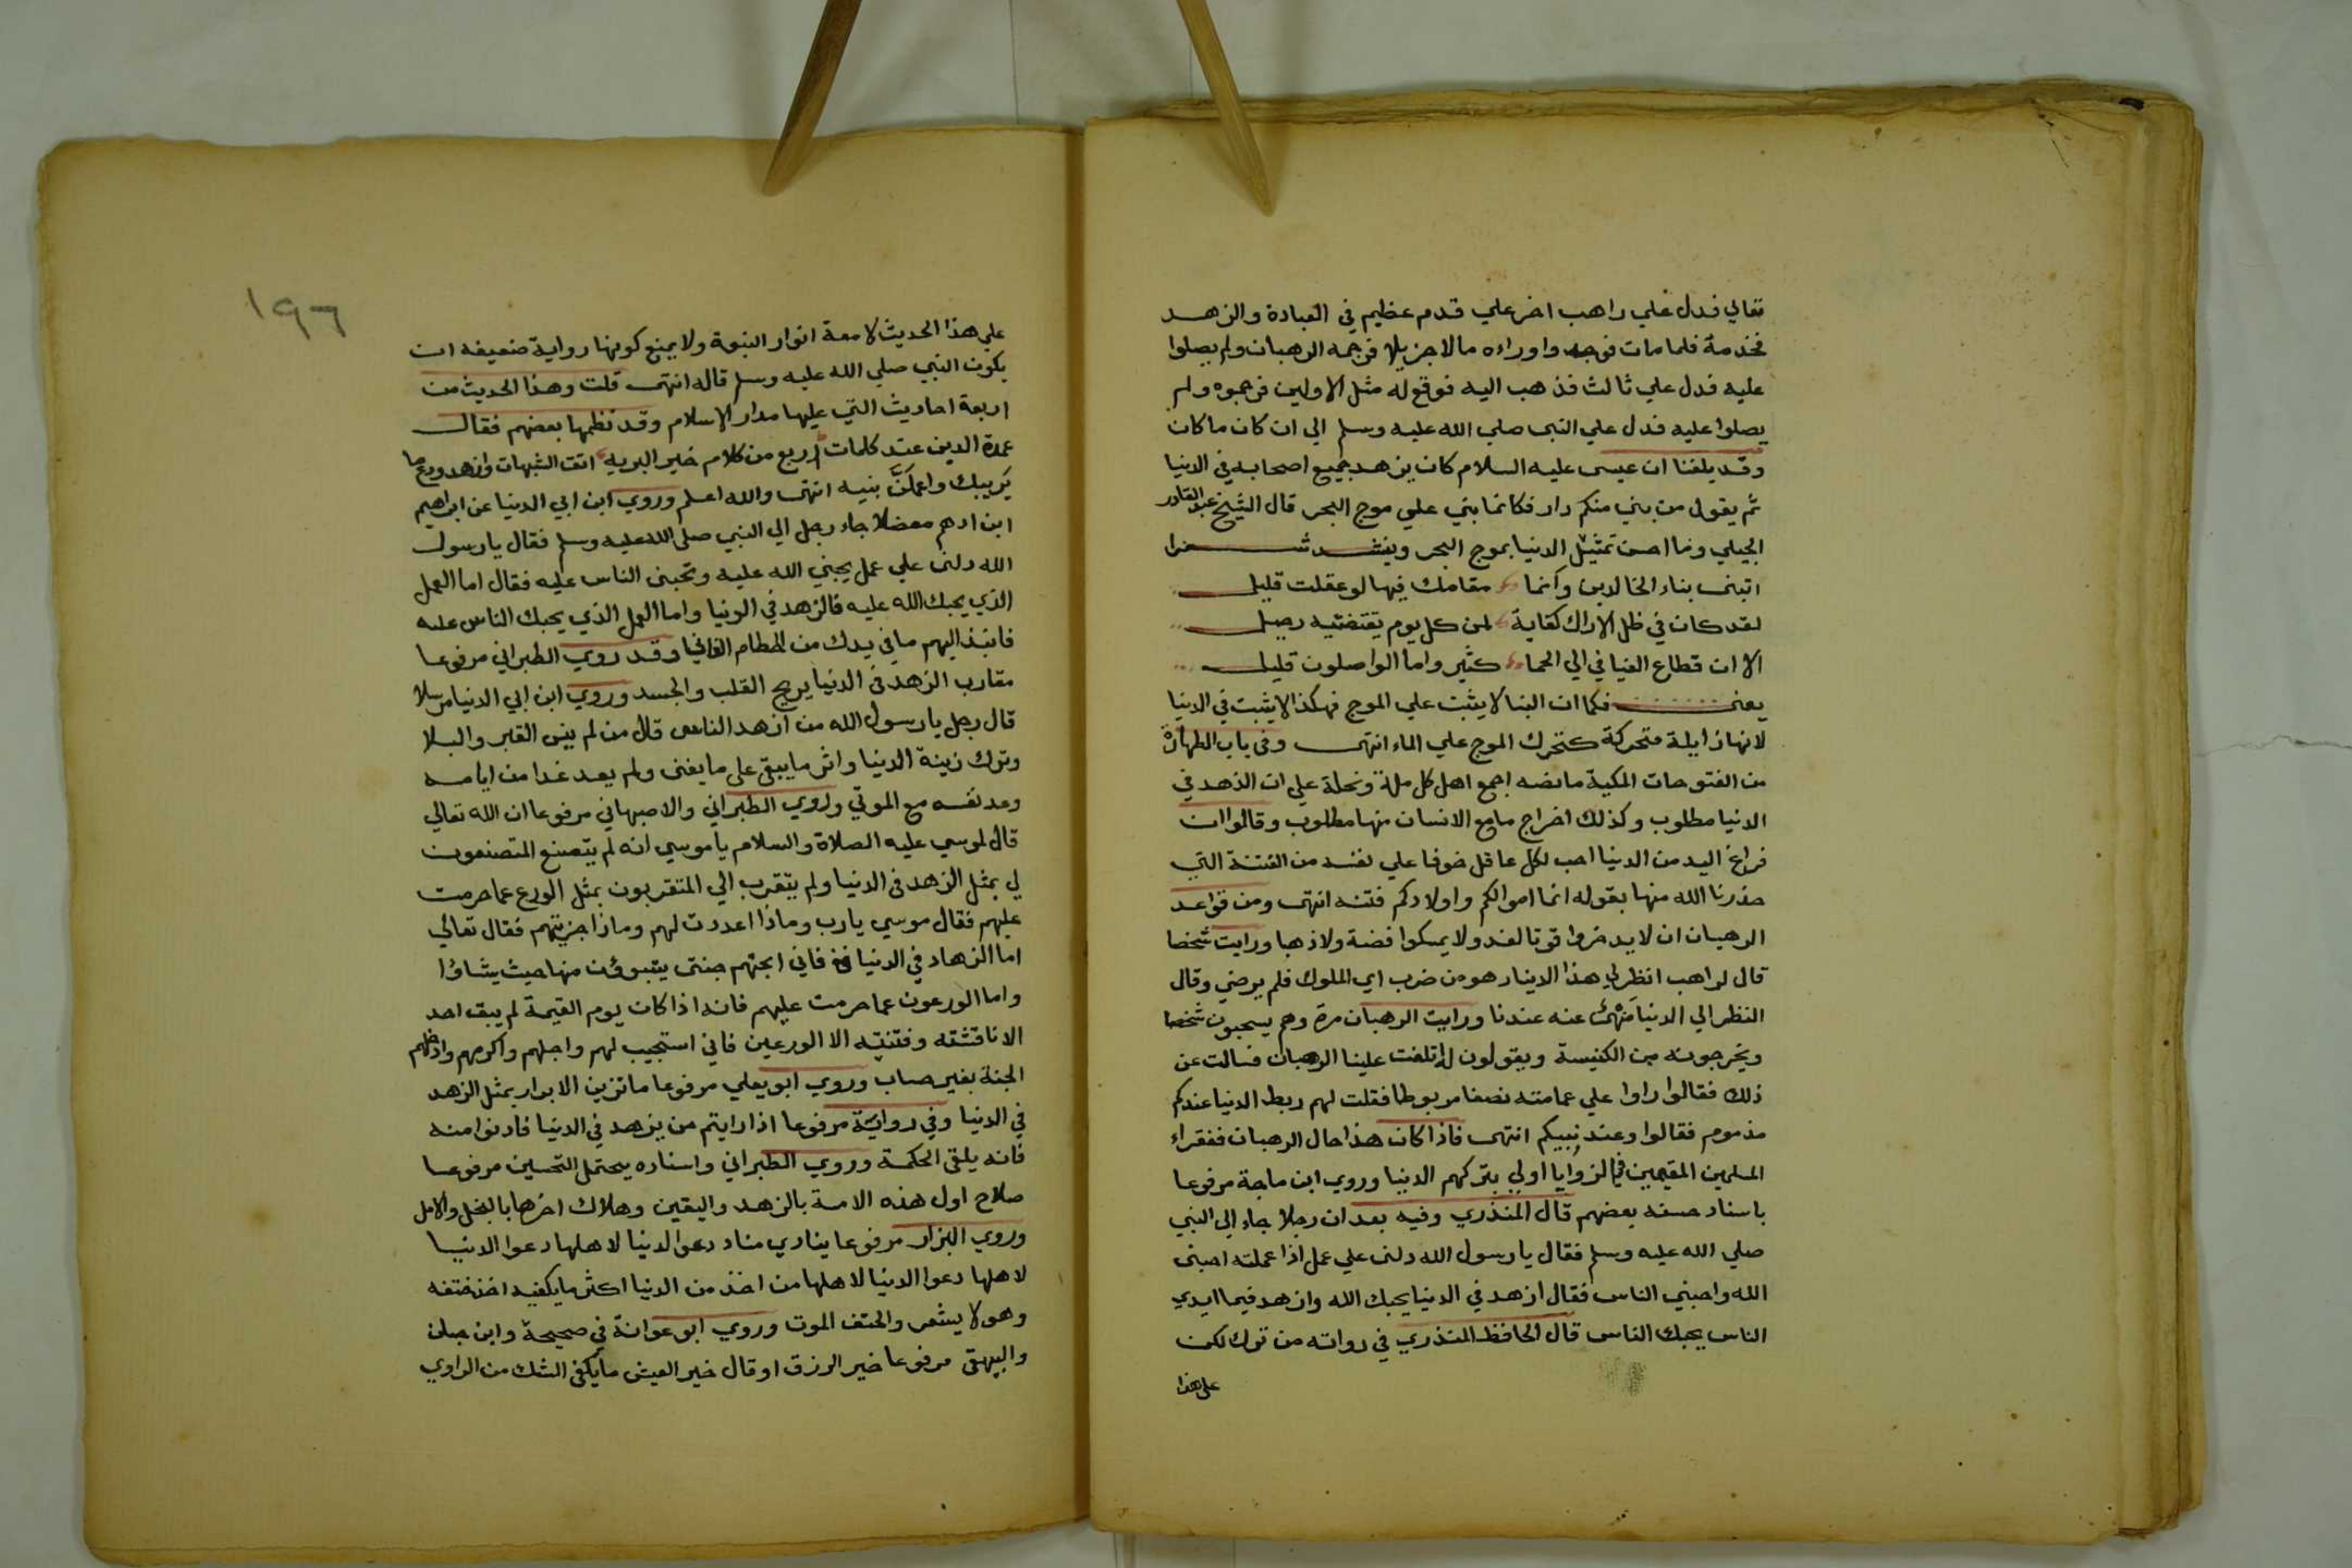 تعالي فدل علي راهب اخر علي قدم عظيم في العبادة والزهد
فخدمة فلما مات فوجد واوراءه مالا جزيلا فرجمه الرهبان ولم يصلوا
عليه فدل علي ثالث فذهب اليه فوقع له مثل الاولين فرجموه ولم
يصلوا عليه فدل علي النبى صلي الله عليه وسلم الي ان كان ما كان
وقد بلغنا ان عيسى عليه السلام كان يزهد جميع اصحابه في الدنيا
ثم يقول من بني منكم دار فكانما بني علي موج البحر قال الشيخ عبد القادر
الجيلي وما احسن تمثيل الدنيا بموج البحر وينشد شعرا
اتبنى بناء الخالدين وانما مقامك فيها لو عقلت قليل
لقد كان في ظل الاراك كفاية لمن كل يوم يقتضيه رحيل
الا ان قطاع الفيافي الي الحما كثير واما الواصلون قليل
يعنى فكما ان البنا لا يثبت علي الموج فهكذا لا يثبت في الدنيا
لانها زايلة متحركة كتحرك الموج علي الماء انتهى وفى باب الطهارة
من الفتوحات المكية ما نصه اجمع اهل كل ملة ونحلة علي ان الذهد في
الدنيا مطلوب وكذلك اخراج مامع الانسان منها مطلوب وقالوا ان
فراغ اليد من الدنيا احب لكل عاقل خوفا علي نفسه من الفتنة التي
حذرنا الله منها بقوله انما اموالكم واولادكم فتنه انتهى ومن قواعد
الرهبان ان لا يدخروا قوتا لغد ولا يمسكوا فضة ولا ذهبا ورايت شخصا
قال لراهب انظر لي هذا الدينار هو من ضرب اي الملوك فلم يرضي وقال
النظر الي الدنيا منهى عنه عندنا ورايت الرهبان مرة وهم يسحبون شخصا
ويخرجونه من الكنيسة ويقولون له اتلفت علينا الرهبان فسالت عن
ذلك فقالوا راوا علي عمامته نصفا مربوطا فقلت لهم ربط الدنيا عندكم
مذموم فقالوا وعند نبيكم انتهى فاذا كان هذا حال الرهبان ففقراء
المسلمين المقيمين في الزوايا اولي بتركهم الدنيا وروي ابن ماجة مرفوعا
باسناد حسنه بعضهم قال المنذري وفيه بعد ان رجلا جاء الي النبي
صلي الله عليه وسلم فقال يا رسول الله دلنى علي عمل اذا عملته احبنى
الله واحبني الناس فقال ازهد في الدنيا يحبك الله وازهد فيما ايدي
الناس يحبك الناس قال الحافظ المنذري في رواته من ترك لكن
على هذا
١٩٦
علي هذا الحديث لامعة انوار النبوة ولا يمنع كونها رواية ضعيفه ان
يكون النبي صلي الله عليه وسلم قاله انتهى قلت وهذا الحديث من
اربعة احاديث التي عليها مدار الاسلام وقد نظمها بعضهم فقال
عمدة الدين عند كلمات اربع من كلام خير البريه اتق الشبهات وازهد ودع ما
يريبك واعملن بنيه انتهى والله اعلم وروي ابن ابي الدنيا عن ابراهيم
ابن ادهم معضلا جاء رجل الي النبي صلى الله عليه وسلم فقال يا رسول
الله دلنى علي عمل يحبني الله عليه وتحبنى الناس عليه فقال اما العمل
الذي يحبك الله عليه فالزهد في الدنيا واما العمل الذي يحبك الناس عليه
فانبذ اليهم ما في يدك من الحطام الفاني وقد روي الطبراني مرفوعا
مقارب الزهد في الدنيا يريح القلب والجسد وروي ابن ابي الدنيا مرسلا
قال رجل يا رسول الله من ازهد الناس قال من لم ينس القبر والبلا
وترك زينة الدنيا واثر ما يبقى على ما يفنى ولم يعد غدا من ايامه
وعد نفسه مع الموتي وروي الطبراني والاصبهاني مرفوعا ان الله تعالي
قال لموسي عليه الصلاة والسلام يا موسي انه لم يتصنع المتصنعون
لي بمثل الزهد في الدنيا ولم يتقرب الي المتقربون بمثل الورع عما حرمت
عليهم فقال موسي يا رب وماذا اعددت لهم وماذا جزيتهم فقال تعالي
اما الزهاد في الدنيا فاني ابحتهم جنتى يتبوؤن منها حيث يشاؤا
واما الورعون عما حرمت عليهم فانه اذا كان يوم القيمة لم يبق احد
الا ناقشته وفتنته الا الورعين فاني استجيب لهم واجلهم واكرمهم وادخلهم
الجنة بغير حساب وروي ابو يعلي مرفوعا ما تزين الابرار بمثل الزهد
في الدنيا وفي رواية مرفوعا اذا رايتم من يزهد في الدنيا فادنوا منه
فانه يلقى الحكمة وروي الطبراني واسناده يحتمل التحسين مرفوعا
صلاح اول هذه الامة بالزهد واليقين وهلاك اخرها بالبخل والامل
وروي البزار مرفوعا ينادي مناد دعوا الدنيا لاهلها دعوا الدنيا
لاهلها دعوا الدنيا لاهلها من اخذ من الدنيا اكثر ما يكفيه اخذ حتفه
وهو لا يشعر والحتف الموت وروي ابو عوانة في صحيحة وابن حبان
والبيهقي مرفوعا خير الرزق او قال خير العيش ما يكفي الشك من الراوي